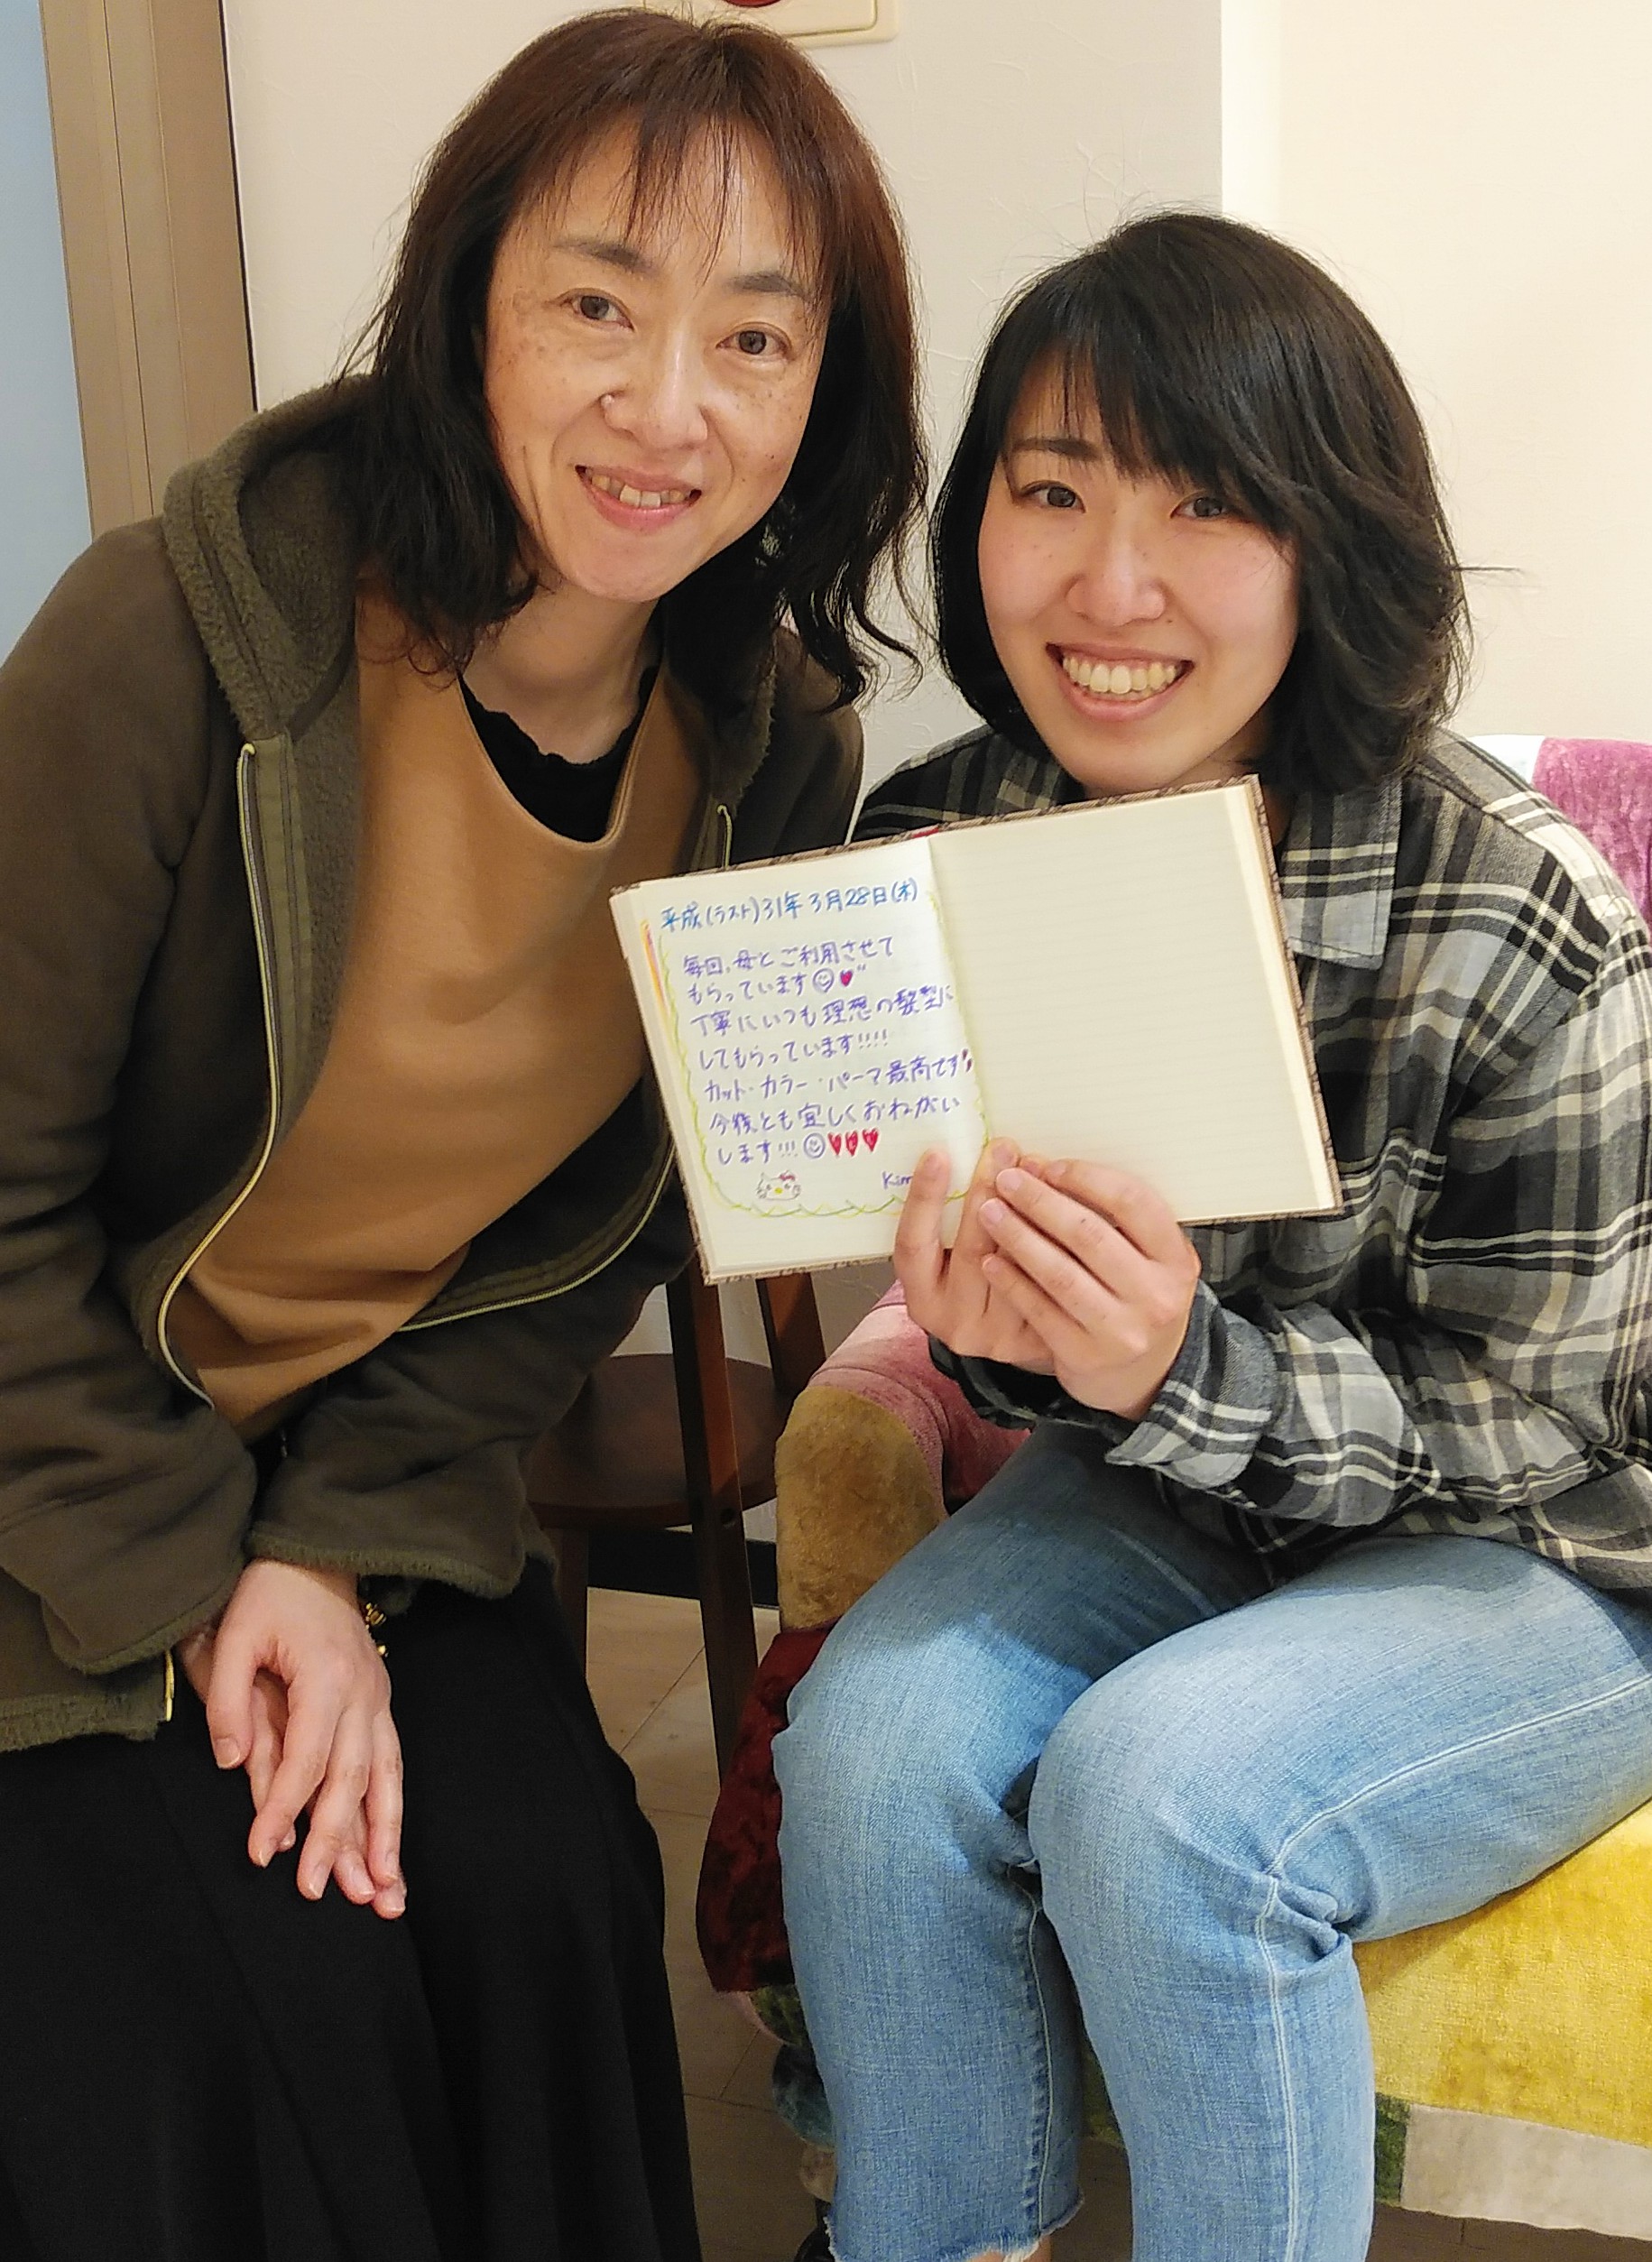 平成(ラスト)31年3月28日(木)
毎回、母とご利用させて
もらっています
丁寧にいつも理想の髪型に
してもらっています!!!!
カット・カラー・パーマ最高です
今後とも宜しくおねがい
します!!!